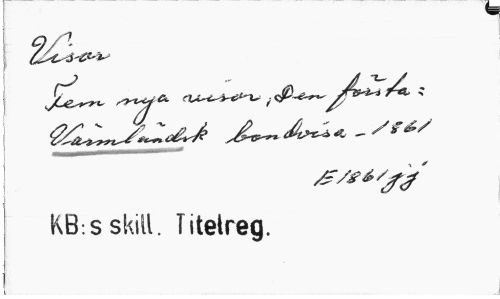 Visor
Fem nya visor, Den första:
Värmländsk bondvisa - 1861
E1861 jj
KB:s skill. Titelreg.